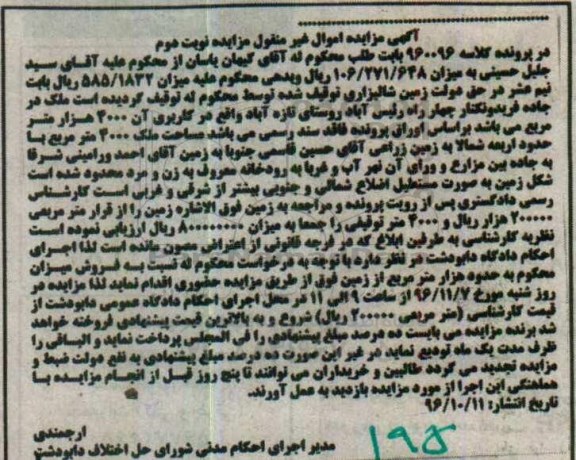 آگهی مزایده اموال غیر منقول مزایده نوبت دوم
در پرونده کلاسه ۹۶۰۰۹۶ بابت طلب محکوم له آقای کیهان یاسان از محکوم علیه آقای سید
جلیل حسینی به میزان ۱۰۶/۲۷۱/۶۴۸ ریال وبدهی محکوم علیه میزان ۵۸۵/۱۸۳۲ ریال بابت
نیم عشر در حق دولت زمین شالیزاری توقیف شده توسط محکوم له توقیف گردیده است ملک در
جاده فریدونکنار چهار راه رئیس آباد روستای تازه آباد واقع در کاربری آن ۴۰۰۰ هزار متر
مربع می باشد براساس اوراق پرونده فاقد سند رسمی می باشد مساحت ملک ۴۰۰۰ متر مربع با
حدود اربعه شمالا به زمین زراعی آقای حسین قاسمی جنوبا به زمین آقای احمد ورامینی شرقا
به جاده بین مزارع و ورای آن نهر آب و غربا به رودخانه معروف به زن و مرد محدود شده است
شکل زمین به صورت مستطیل اضلاع شمالی و جنوبی بیشتر از شرقی و غربی است کارشناس
رسمی دادگستری پس از رویت پرونده و مراجعه به زمین فوق الاشاره زمین را از قرار متر مربعی
۲۰۰۰۰۰ هزار ریال و ۴۰۰۰ متر توقیفی را جمعا به میزان ۸۰۰۰۰۰۰۰۰ ریال ارزیابی نموده است
نظریه کارشناسی به طرفین ابلاغ که در فرجه قانونی از اعتراض مصون مانده است لذا اجرای
احکام دادگاه دابودشت در نظر دارد با توجه به درخواست محکوم له نسبت به فروش میزان
محکوم به حدود هزار متر مربع از زمین فوق از طریق مزایده حضوری اقدام نماید لذا مزایده در
روز شنبه مورخ ۹۶/۱۱/۷ از ساعت ۹ الی ۱۱ در محل اجرای احکام دادگاه عمومی دابودشت از
قیمت کارشناسی (متر مربعی ۲۰۰۰۰۰ ریال) شروع و به بالاترین قیمت پیشنهادی فروخته خواهد
شد برنده مزایده می بایست ده درصد مبلغ پیشنهادی را فی المجلس پرداخت نماید و الباقی را
ظرف مدت یک ماه تودیع نماید در غیر این صورت ده درصد مبلغ پیشنهادی به نفع دولت ضبط و
مزایده تجدید می گردد طالبین و خریداران می توانند تا پنج روز قبل از انجام مزایده با
هماهنگی این اجرا از مورد مزایده بازدید به عمل آورند.
تاریخ انتشار: ۹۶/۱۰/۱۱
ارجمندی
مدیر اجرای احکام مدنی شورای حل اختلاف دابودشت
۱۹۵